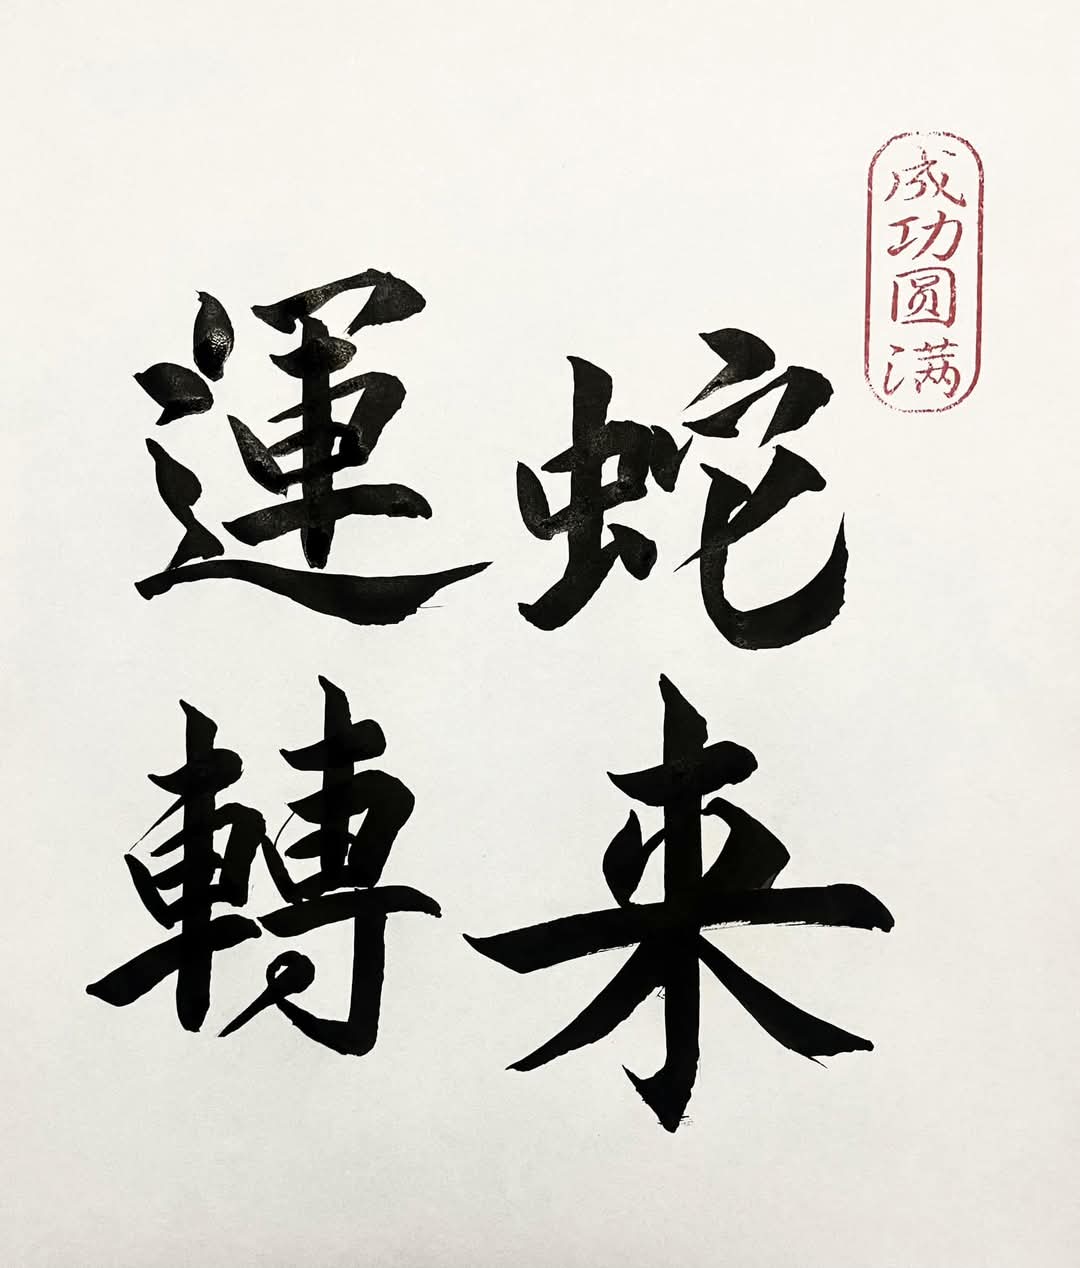 成功圆满
蛇来
運轉